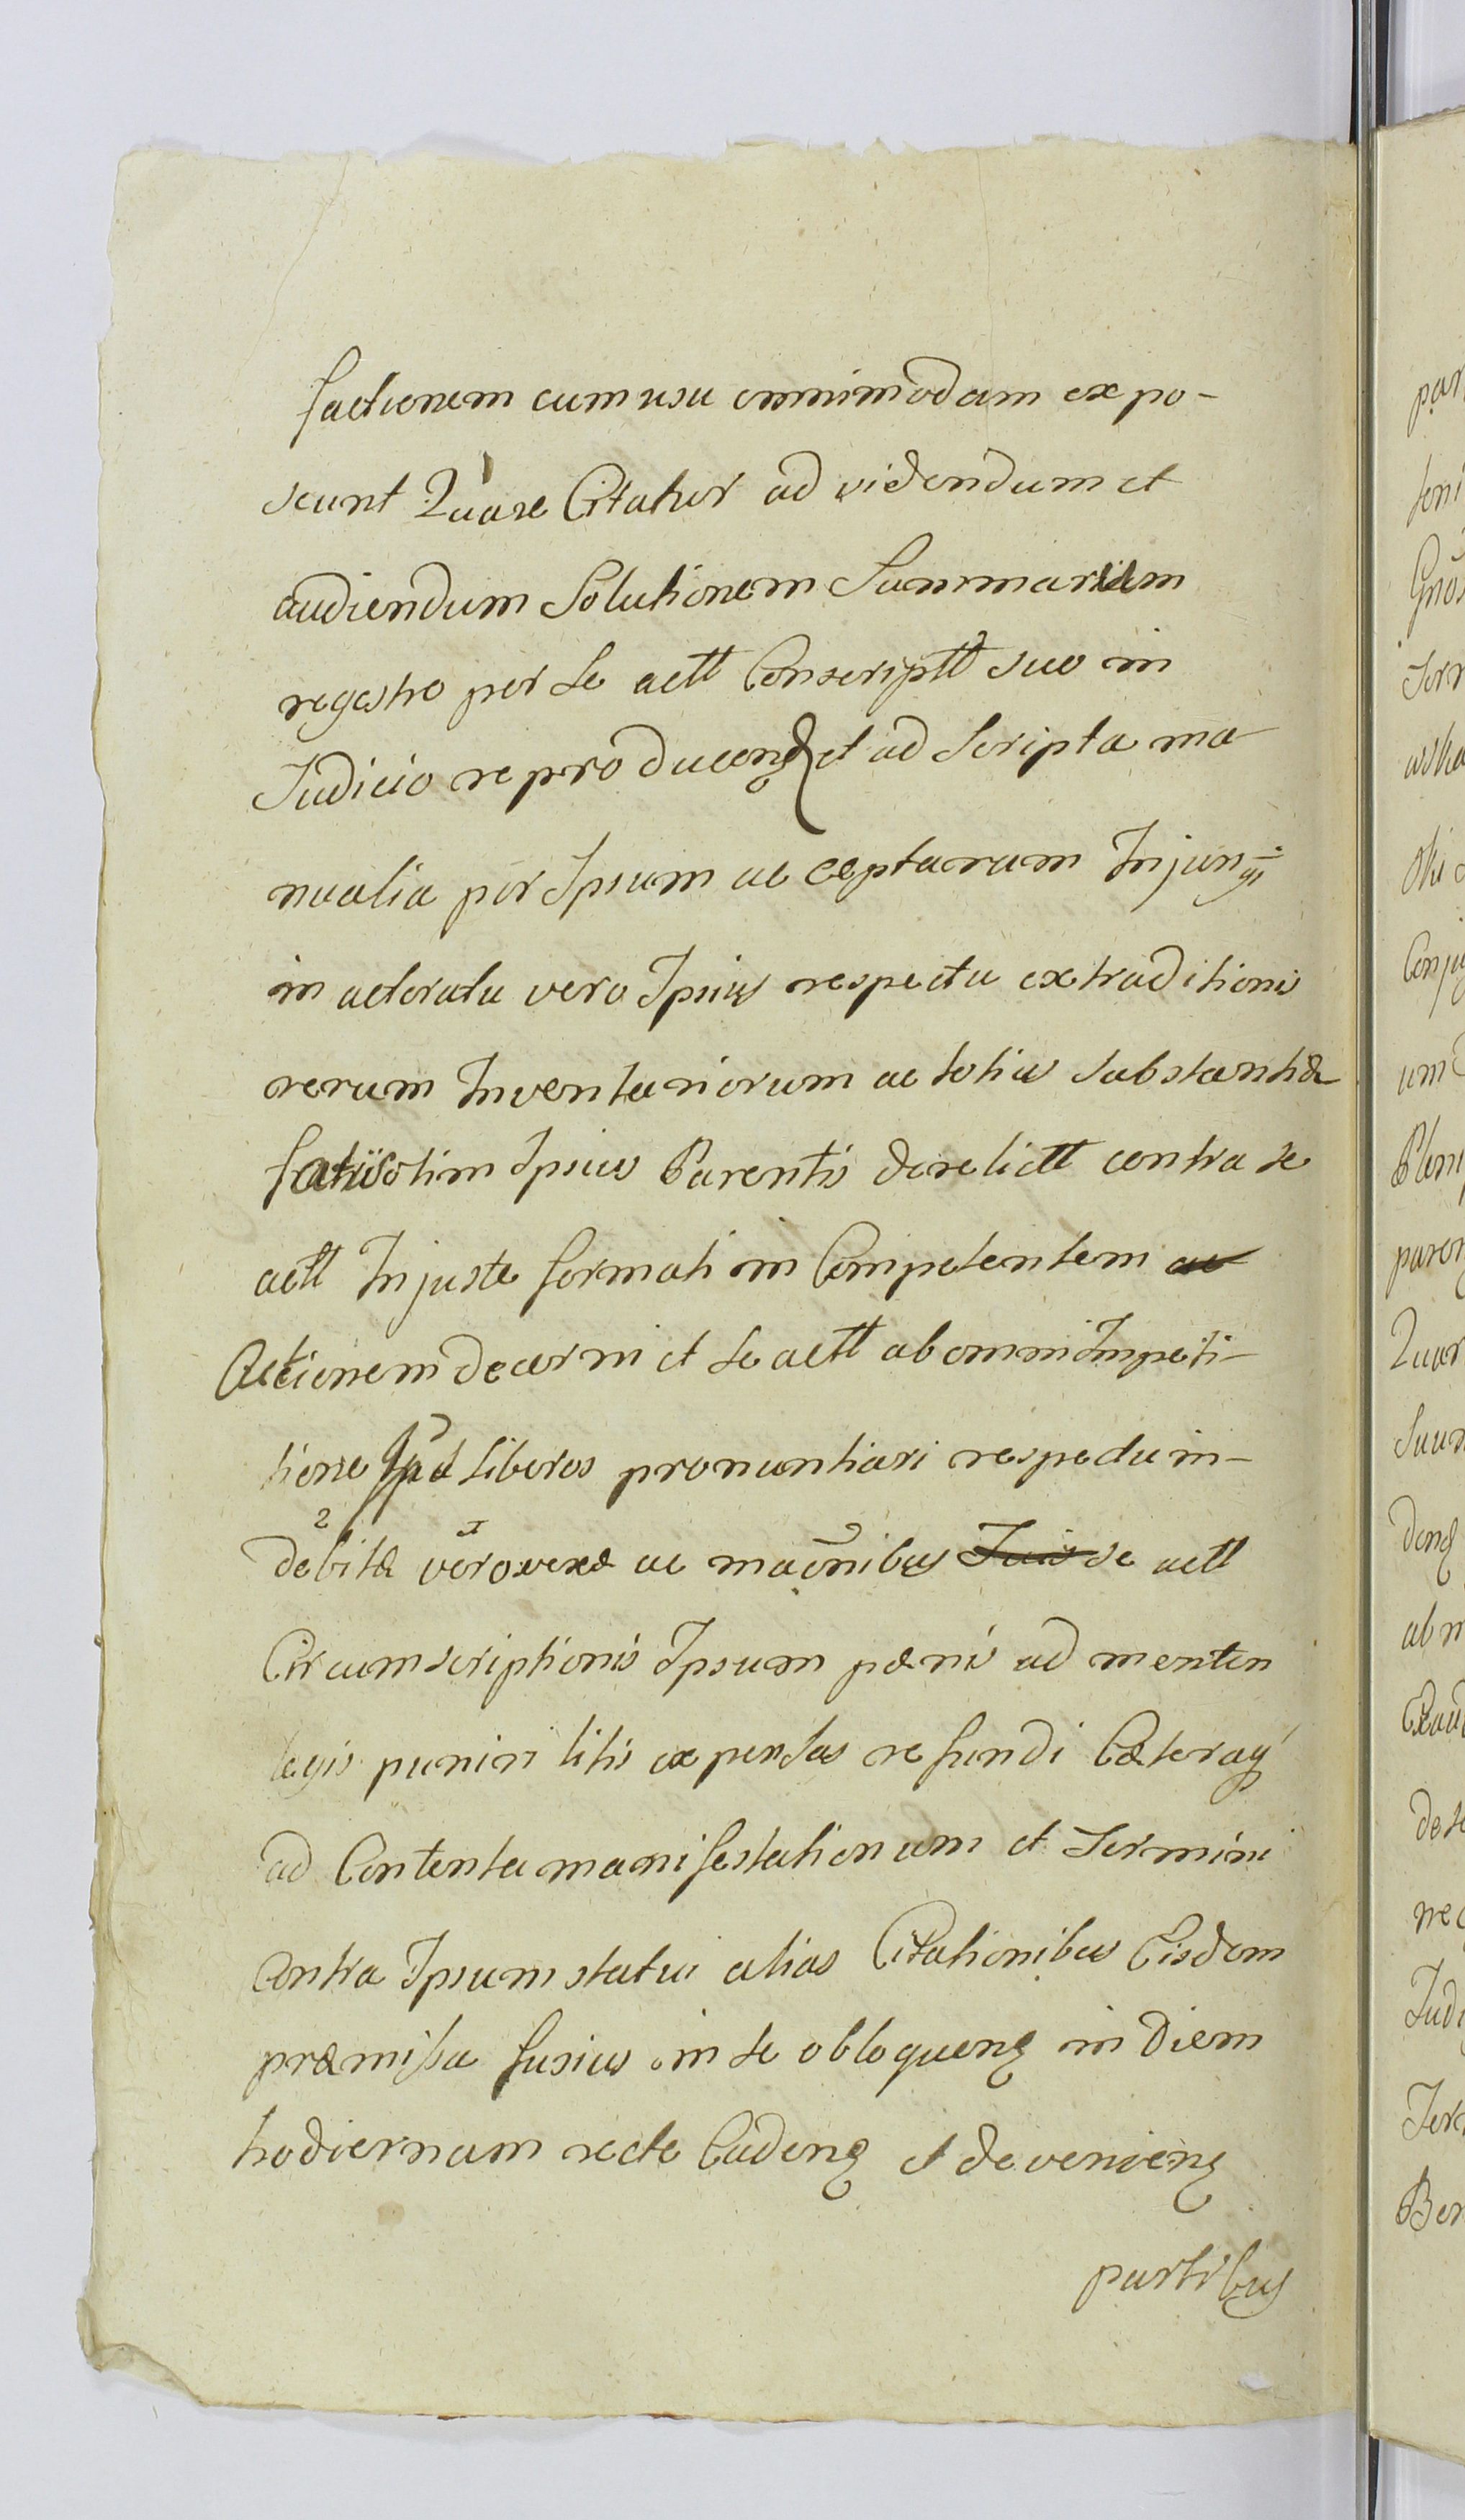 factionem cum usu omnimodam expo-
scunt Quare Citatur ad videndum et
audiendum Solutionem Summarum
regestro per Se actt Conscriptt suo in
Judicio reproducend et ad Scripta ma
nualia per Ipsum acceptarum Injungi
in actoratu vero Ipsius respectu extraditionis
rerum Inventariorum ac totius substantiæ
Ipsius Parentis derelictt contra se
actt Injuste formati in Competentem ac
Actionem decerni et Se actt ab omni Impeti-
tione liberos pronuntiari respectu in-
debitæ vero vexæ ac maonibus se actt
Circumscriptionis Ipsum pænis ad mentem
legis puniri litis expensas refundi Cæteraq
ad Contenta manifestationum et Termini
Contra Ipsum statui alias Citationibus Eisdem
præmissa fusius in se obloquenq in Diem
hodiernam recte Cadenq et devenienq
partibus